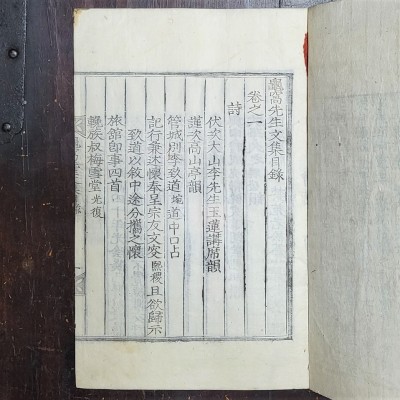 窩先生文集目錄
卷之一
詩
伏次大山李先生玉蓮講席韻
謹次高山亭韻
管城別李致道 道中口占
記行兼述懷奉呈宗友文 熙稷 且欲歸示
致道以敘中途分攜之懷
旅舘卽事四首
輓族叔梅雪堂 光復